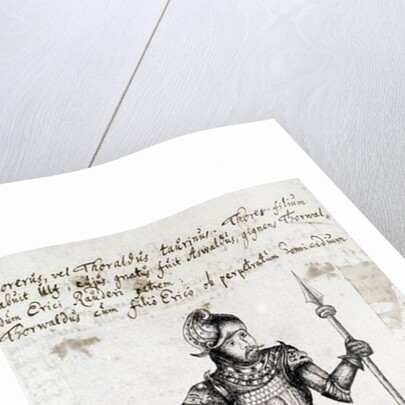 orerus, vel Thoraldus taurinus. Thorer filium
abuit Ulf: cujus gnatus fuit Aswaldus, gignens Thorwal-
dum Erici Rauderi patrem.
Thorwaldus cum filio Erico ob perpetratum homicidium